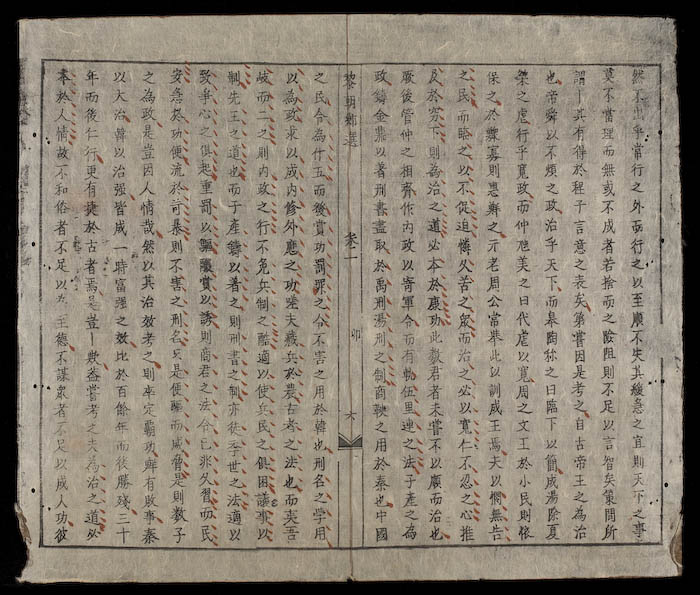 然不出乎常行之外而行之以至順不失其緩急之宜則天下之事
莫不當理而無或不成者若捨而之險阻則不足以言智矣策問所
謂一其有得於程子言意之表矣第嘗因是考之自古帝王之為治
也帝舜以不煩之政治乎天下而皋陶称之曰臨下以簡成湯除夏
桀之虐行乎寬政而仲虺美之曰代虐以寬周之文王於小民則依
保之於鰥寡則惠鮮之元老周公當舉此以訓成王焉夫以憫無告
之民而睦之以不促迫憐久苦之眾而治之必以寬仁不忍之心推
及於窮下則為治之道必本於慶功此数君者未嘗不以順而治也
厥後管仲之相齊作内政以寄軍令而有軌伍里連之法子產之為
政鑄金鼎以著刑書盡取於禹刑湯刑之制商鞅之用於秦也中國
黎朝鄉選 卷二 卯 六
之民合為什五而後賞功罰罪之令不害之用於韓也刑名之学用
以為政求以成内修外應之功嗟夫藏兵於農古者之法也而夷吾
岐而二之則内政之行不免兵制之酷適以使兵民之俱困議事以
制先王之道也而子產鑄以著之則刑書之制亦徒季世之法適以
致爭心之俱起重罰以驅嚴賞以誘則商君之法令已非久習而民
安急於功便流於苛暴則不害之刑名只是便驅而威脅是則数子
之為政是豈因人情哉然以其治效考之則卒定霸功鮮有敗事秦
以大治韓以治强皆成一時富强之效比於百餘年而後勝殘三十
年而後仁行更有捷於古者焉是豈一歟盖嘗考之夫為治之道必
本於人情故不和俗者不足以為王德不謀眾者不足以成人功彼